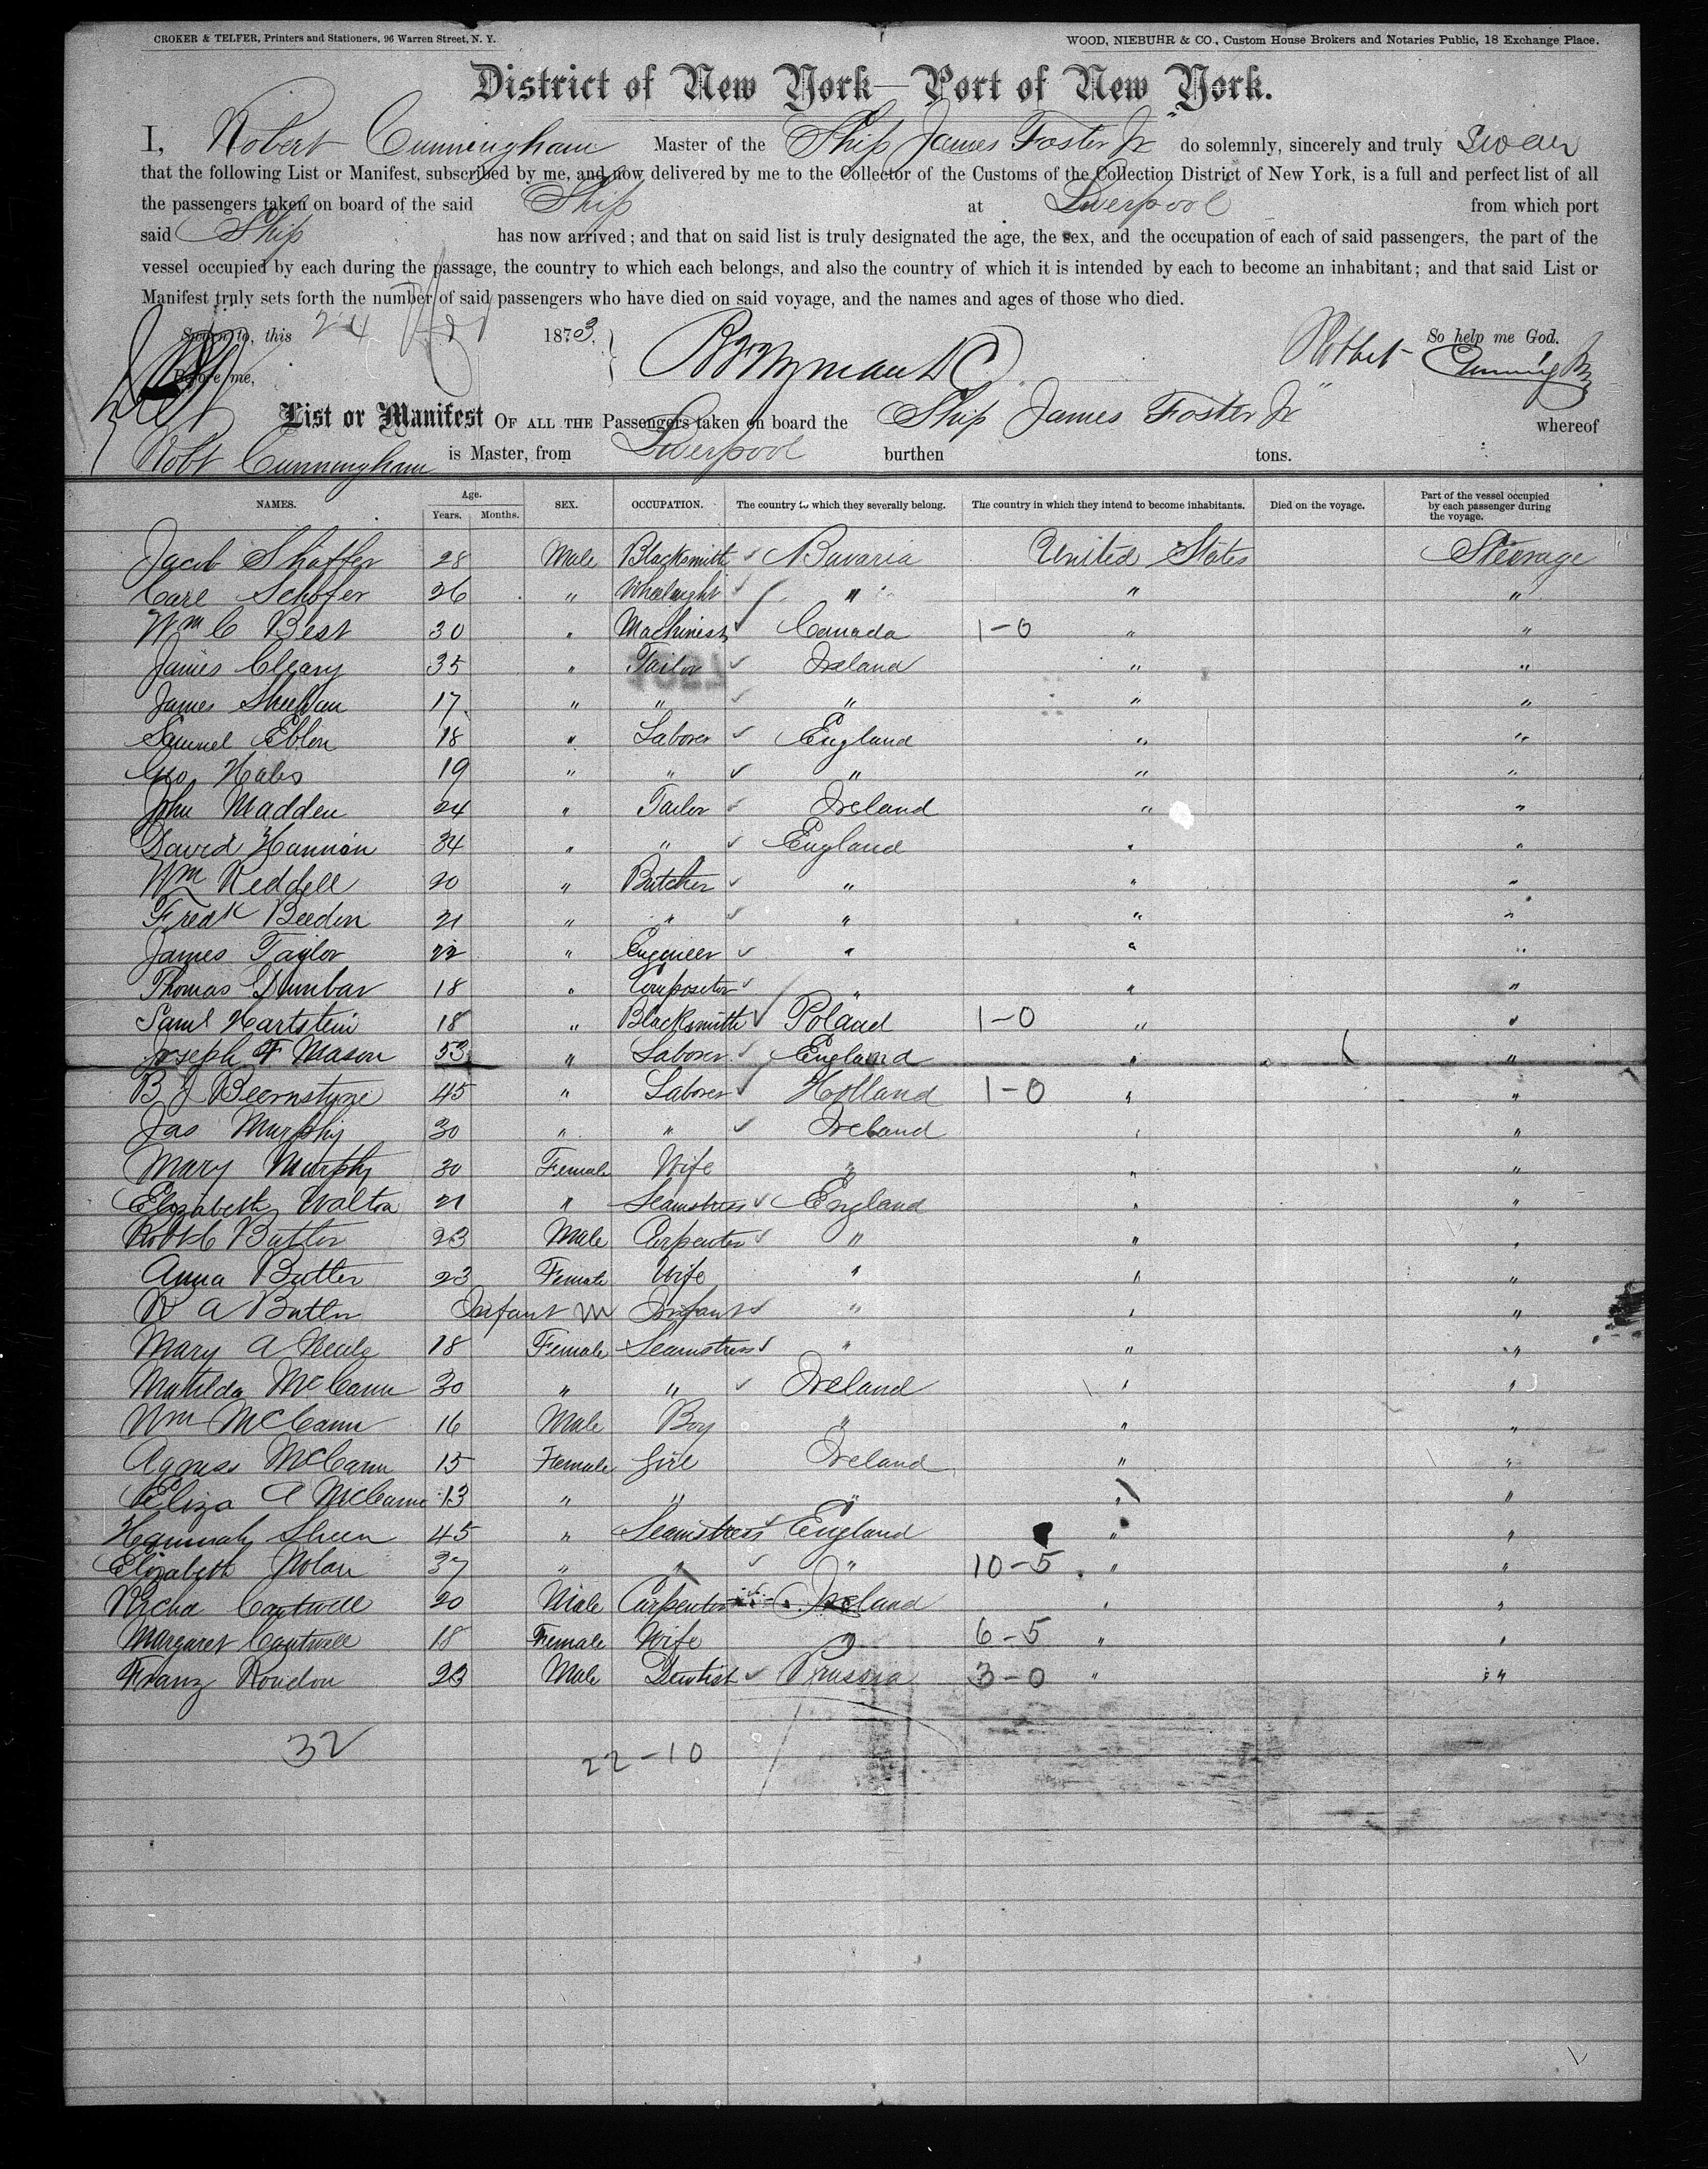 CROKER & TELFER, Printers and Stationers, 96 Warren Street, N. Y. WOOD, NIEBUHR & CO., Custom House Brokers and Notaries Public, 18 Exchange Place.
District of New York—Port of New York.
I, Robert Cunningham Master of the Ship James Foster Jr do solemnly, sincerely and truly swear
that the following List or Manifest, subscribed by me, and now delivered by me to the Collector of the Customs of the Collection District of New York, is a full and perfect list of all
the passengers taken on board of the said Ship at Liverpool from which port
said Ship has now arrived; and that on said list is truly designated the age, the sex, and the occupation of each of said passengers, the part of the
vessel occupied by each during the passage, the country to which each belongs, and also the country of which it is intended by each to become an inhabitant; and that said List or
Manifest truly sets forth the number of said passengers who have died on said voyage, and the names and ages of those who died.
Sworn to, this 24 1873. So help me God.
Before me, Robert Cunningham
List or Manifest OF ALL THE Passengers taken on board the Ship James Foster Jr whereof
Robt Cunningham is Master, from Liverpool burthen tons.
NAMES. Age. Years. Months. SEX. OCCUPATION. The country to which they severally belong. The country in which they intend to become inhabitants. Died on the voyage. Part of the vessel occupied by each passenger during the voyage.
Jacob Shaffer 28 Male Blacksmith Bavaria United States Steerage
Carl Schofer 26 " Wheelwright " " "
Wm C Best 30 " Machinist Canada 1-0 " "
James Cleary 35 " Tailor Ireland " "
James Sheehan 17 " " " " "
Samuel Eblon 18 " Laborer England " "
Geo Hales 19 " " " " "
John Madden 24 " Tailor Ireland " "
David Hannion 34 " " England " "
Wm Reddell 20 " Butcher " " "
Fredk Beeden 21 " " " " "
James Taylor 22 " Engineer " " "
Thomas Dunbar 18 " Compositor " " "
Saml Hartstein 18 " Blacksmith Poland 1-0 " "
Joseph F Mason 53 " Laborer England " "
B J Beernstyne 45 " Laborer Holland 1-0 " "
Jas Murphy 30 " " Ireland " "
Mary Murphy 30 Female Wife " " "
Elizabeth Walton 21 " Seamstress England " "
Robt C Butler 23 Male Carpenter " " "
Anna Butler 23 Female Wife " " "
R A Butler Infant M Infant " " "
Mary A Neele 18 Female Seamstress " " "
Matilda McCann 30 " " Ireland " "
Wm McCann 16 Male Boy " " "
Agness McCann 15 Female Girl Ireland " "
Eliza A McCann 13 " " " " "
Hannah Sheen 45 " Seamstress England " "
Elizabeth Nolan 37 " " " 10-5 " "
Richd Cantwell 20 Male Carpenter Ireland " "
Margaret Cantwell 18 Female Wife " 6-5 " "
Franz Rondon 23 Male Dentist Prussia 3-0 " "
32 22-10